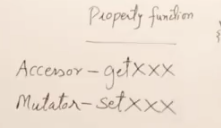 Property function
Accessor - getXXX
Mutator - setXXX